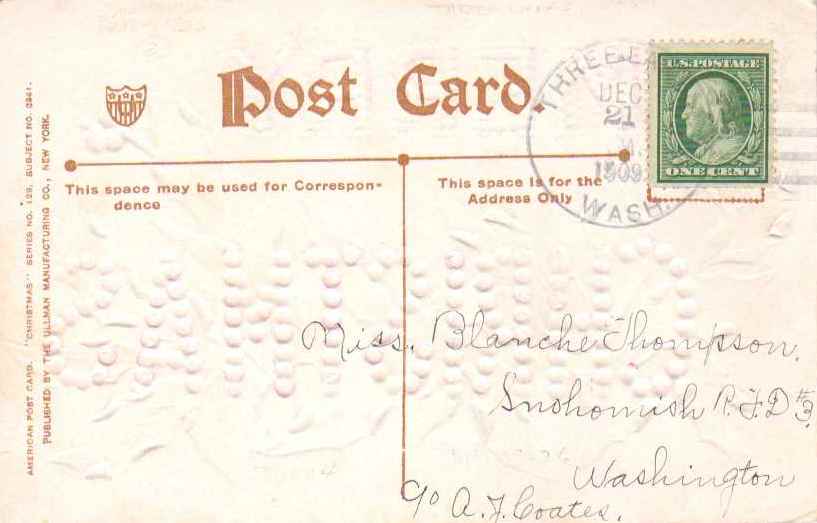 Post Card.
THREE
DEC
21
1909
WASH.
U.S. POSTAGE
ONE CENT
This space may be used for Correspon-
dence
This space is for the
Address Only
AMERICAN POST CARD. "CHRISTMAS" SERIES NO. 129. SUBJECT NO. 2341.
PUBLISHED BY THE ULLMAN MANUFACTURING CO., NEW YORK.
Miss. Blanche Thompson.
Snohomish R.F.D #3.
Washington
c/o A. J. Coates.